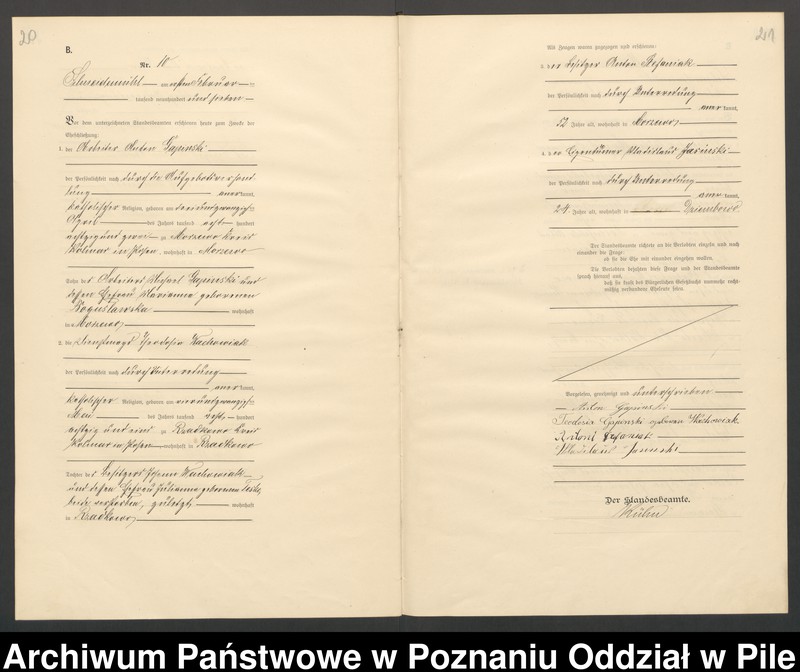 20
B.
Nr. 10
Schneidemühl am ersten Februar
tausend neunhundert und sieben
Vor dem unterzeichneten Standesbeamten erschienen heute zum Zwecke der
Eheschließung:
1. der Arbeiter Anton Gapinski
der Persönlichkeit nach durch die Aufgebotsverhand
lung anerkannt,
katholischer Religion, geboren am dreiundzwanzigsten
April des Jahres tausend acht hundert
achtzig und zwei zu Morzewo Kreis
Kolmar in Posen, wohnhaft in Morzewo
Sohn des Arbeiters Michael Gapinski und
dessen Ehefrau Marianna geborenen
Boguslawska wohnhaft
in Morzewo
2. die Dienstmagd Theodosia Wachowiak
der Persönlichkeit nach durch Unterredung
anerkannt,
katholischer Religion, geboren am vierundzwanzigsten
Mai des Jahres tausend acht hundert
achtzig und eins zu Rzadkowo Kreis
Kolmar in Posen wohnhaft in Rzadkowo
Tochter des Besitzers Wachowiak
und dessen Ehefrau Julianna geborenen
beide verstorben, zuletzt wohnhaft
in Rzadkowo
21
Als Zeugen waren zugezogen und erschienen:
3. der Besitzer Anton
der Persönlichkeit nach durch Unterredung
anerkannt,
52 Jahre alt, wohnhaft in Morzewo
4. der Eigentümer Wladislaus Jasinski
der Persönlichkeit nach durch Unterredung
anerkannt,
24 Jahre alt, wohnhaft in Dziembowo
Der Standesbeamte richtete an die Verlobten einzeln und nach
einander die Frage:
ob sie die Ehe mit einander eingehen wollen.
Die Verlobten bejahten diese Frage und der Standesbeamte
sprach hierauf aus,
daß sie kraft des Bürgerlichen Gesetzbuchs nunmehr recht-
mäßig verbundene Eheleute seien.
Vorgelesen, genehmigt und unterschrieben
Anton Gapinski
Teodosia Gapinski geboren Wachowiak
Antoni
Wladislaus Jasinski
Der Standesbeamte.
Kühn
Archiwum Państwowe w Poznaniu Oddział w Pile